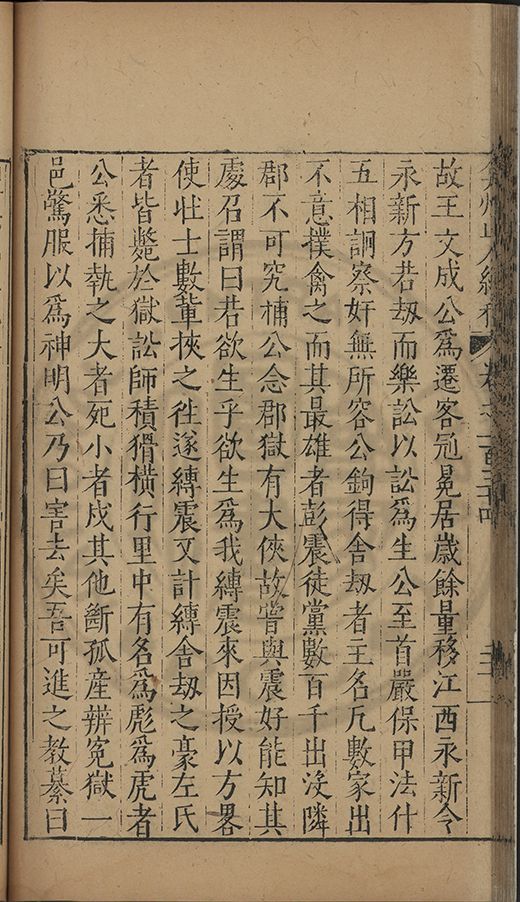 故王文成公爲遷客冠冕居歲餘量移江西永新令
永新方若劫而樂訟以訟爲生公至首嚴保甲法什
五相詗察奸無所容公鉤得舍劫者王名凡數家出
不意撲禽之而其最雄者彭震徒黨數百千出沒隣
郡不可究捕公念郡獄有大俠故嘗與震好能知其
處召謂曰若欲生乎欲生爲我縛震來因授以方畧
使壯士數軰挾之徃遂縛震又計縛舍劫之豪左氏
者皆斃於獄訟師積猾橫行里中有名爲彪爲虎者
公悉捕執之大者死小者戍其他斷孤産辨冤獄一
邑驚服以爲神明公乃曰害去矣吾可進之教纂曰